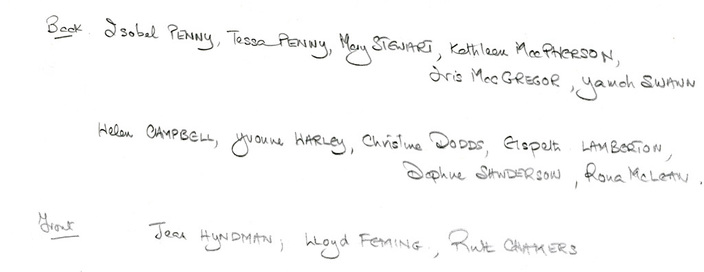 Back Isobel PENNY, Tessa PENNY, Mary STEWART, Kathleen MacPHERSON,
Iris MacGREGOR, Yamoh SWANN
Helen CAMPBELL, Yvonne HARLEY, Christine DODDS, Elspeth LAMBERTON,
Daphne SANDERSON, Rona McLEAN.
Front Jean HYNDMAN, Lloyd FEMING, Ruth CHAMERS